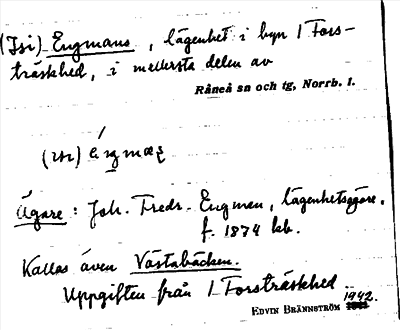 (Isi) Engmans, lägenhet i byn 1 Fors-
träskhed, i mellersta delen av
Råneå sn och tg, Norrb. l.
Ägare: Joh. Fredr. Engman, lägenhetsägare.
f. 1874 kb.
Kallas även Västabäcken.
Uppgiften från 1 Forsträskhed
1942.
EDVIN BRÄNNSTRÖM